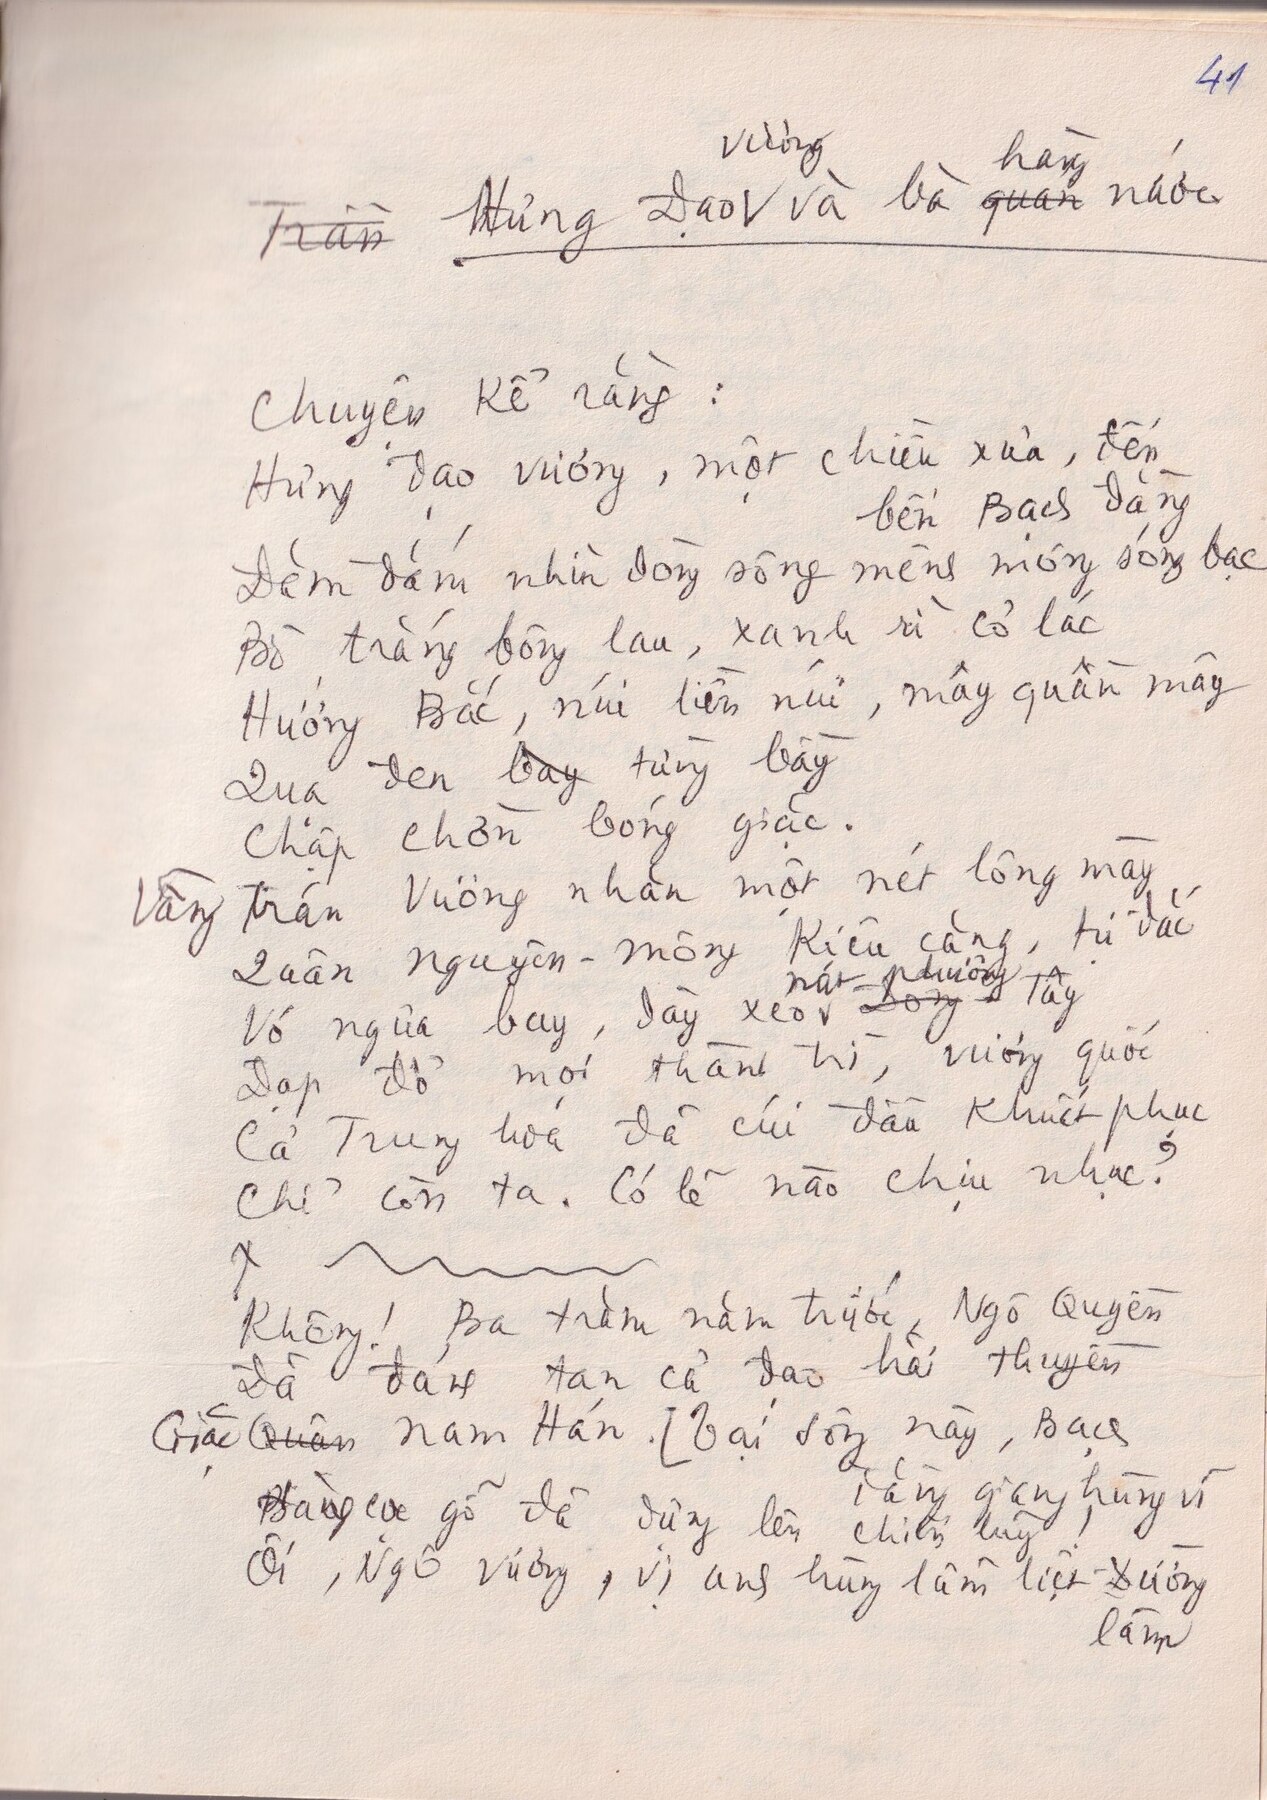 41
vương hàng
Trần Hưng Đạo và bà quán nước
Chuyện kể rằng :
Hưng Đạo vương, một chiều xưa, đến
bến Bạch Đằng
Đăm đắm nhìn dòng sông mênh mông sóng bạc
Bờ trắng bông lau, xanh rì cỏ lác
Hướng Bắc, núi liền núi, mây quấn mây
Quạ đen bay từng bầy
Chập chờn bóng giặc.
Vầng trán Vương nhăn một nét lông mày
Quân Nguyên-Mông kiêu căng, tự đắc
nát phương
Vó ngựa bay, dày xéo Đông Tây
Đạp đổ mọi thành trì, vương quốc
Cả Trung hoá đã cúi đầu khuất phục
Chỉ còn ta. Có lẽ nào chịu nhục?
x
Không! Ba trăm năm trước, Ngô Quyền
Đã đánh tan cả đạo hải thuyền
Giặc Quân nam Hán. [Tại sông này, Bạch
Đằng giang hùng vĩ
Hàng cọc gỗ đã dựng lên chiến lũy!
Ôi, Ngô Vương, vị anh hùng lẫm liệt Xương
lắm